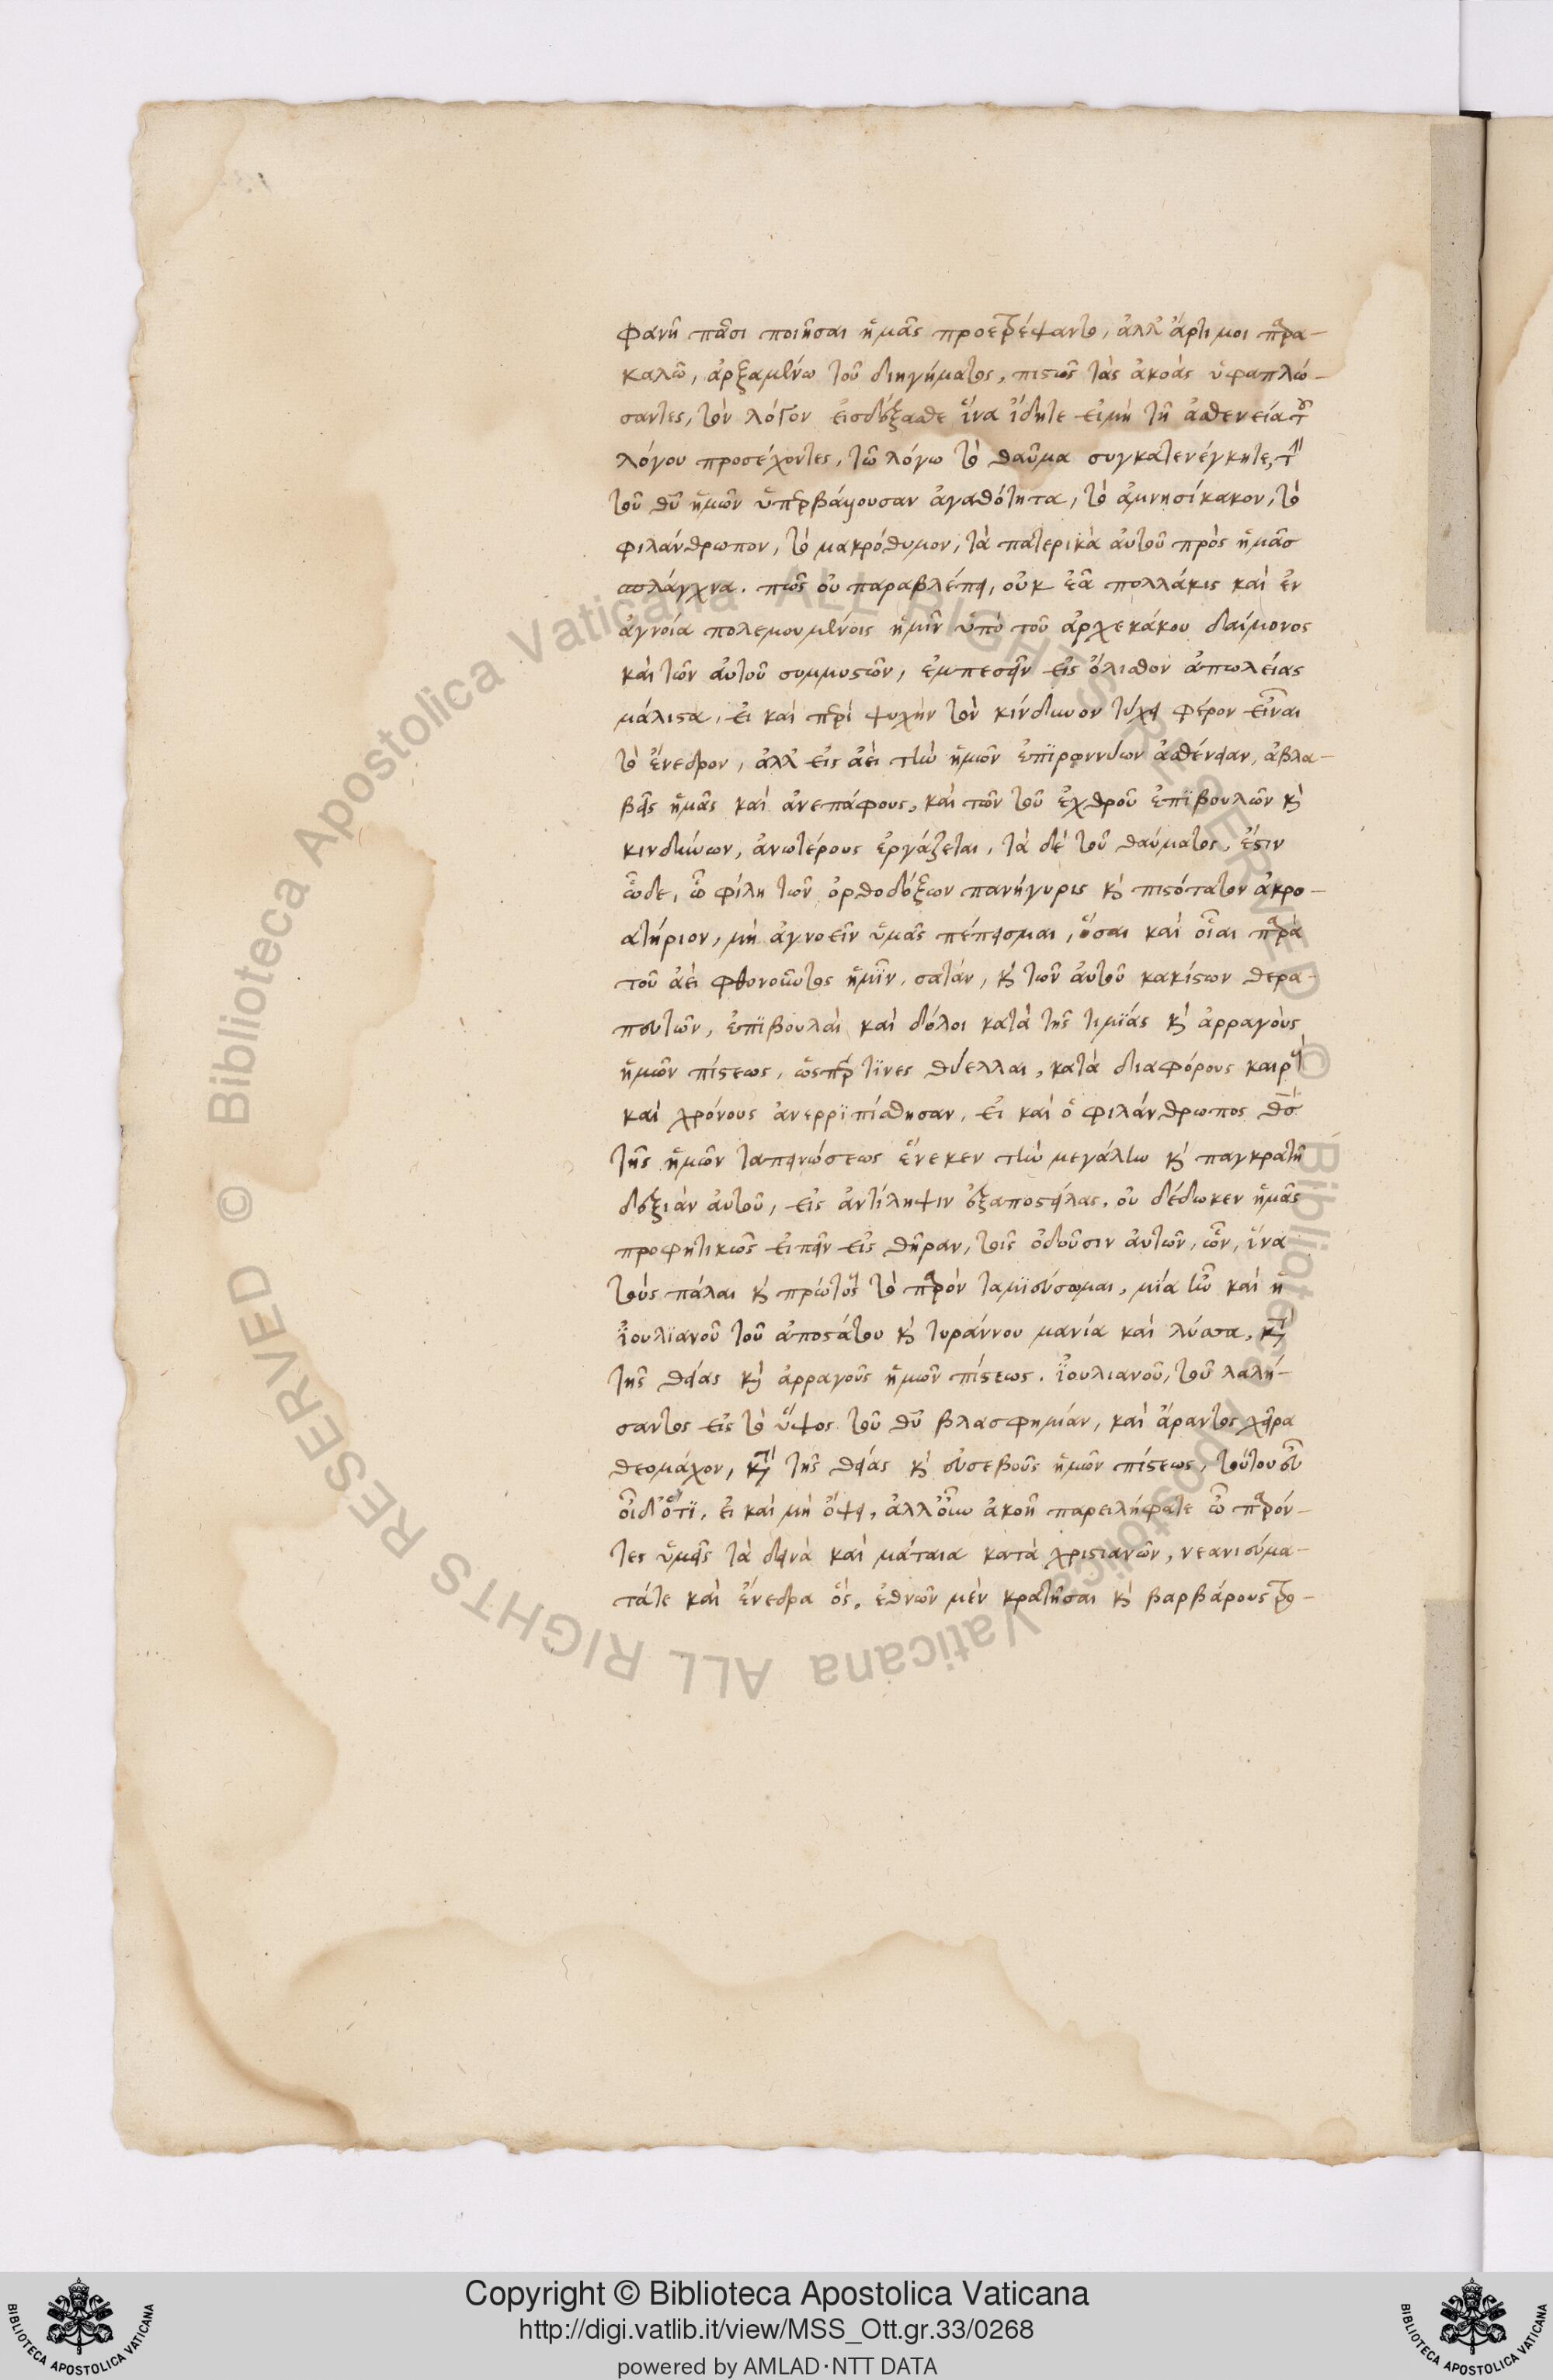 φανῆ πᾶσι ποιῆσαι ἡμᾶς προετρέψαντο, ἀλλ' ἄρτι μοι παρα-
καλῶ, ἀρξαμένω τοῦ διηγήματος, πιστῶς τὰς ἀκοὰς ὑφαπλώ-
σαντες, τὸν λόγον εἰσδέξασθε ἵνα ἴδητε εἰ μὴ τῆ ἀσθενεία τοῦ
λόγου προσέχοντες, τῶ λόγω τὸ θαῦμα συγκατενέγκητε, τὴν
τοῦ θυ ἡμῶν ὑπερβάλλουσαν ἀγαθότητα, τὸ ἀμνησίκακον, τὸ
φιλάνθρωπον, τὸ μακρόθυμον, τὰ πατερικὰ αὐτοῦ πρὸς ἡμᾶσ
σπλάγχνα. πῶς οὐ παραβλέπει, οὐκ ἐᾶ πολλάκις καὶ ἐν
ἀγνοία πολεμουμένοις ἡμῖν ὑπὸ τοῦ ἀρχεκάκου δαίμονος
καὶ τῶν αὐτοῦ συμμυστῶν, ἐμπεσεῖν εἰς ὄλισθον ἀπωλείας
μάλιστα, εἰ καὶ περὶ ψυχὴν τὸν κίνδυνον τύχει φέρον εἶναι
τὸ ἔνεδρον, ἀλλ' εἰς ἀεὶ τὴν ἡμῶν ἀσθένειαν, ἀβλα-
βεῖς ἡμᾶς καὶ ἀνεπάφους, καὶ τῶν τοῦ ἐχθροῦ ἐπϊβουλῶν κὶ
κινδύνων, ἀνωτέρους ἐργάζεται, τὰ δὲ τοῦ θαύματος, ἔστιν
ὧδε, ὦ φίλη τῶν ὀρθοδόξων πανήγυρις κὶ πιστότατον ἀκρο-
ατήριον, μὴ ἀγνοεῖν ὑμᾶς πέπεισμαι, ὅσαι καὶ οἷαι παρὰ
τοῦ ἀεὶ φθονοῦντος ἡμῖν, σατάν, κὶ τῶν αὐτοῦ κακίστων θερα-
πευτῶν, ἐπϊβουλαὶ καὶ δόλοι κατὰ τῆς τιμΐας κὶ ἀρραγοὺς
ἡμῶν πίστεως, ὥσπερ τϊνες θύελλαι, κατὰ διαφόρους καιροὺς
καὶ χρόνους ἀνερρϊπίσθησαν, εἰ καὶ ὁ φιλάνθρωπος θσ
τῆς ἡμῶν ταπεινώσεως ἕνεκεν τὴν μεγάλην κὶ παγκρατῆ
δεξιὰν αὐτοῦ, εἰς ἀντίληψιν ἐξαποστείλας, οὐ δέδωκεν ἡμᾶς
προφητικῶς εἰπεῖν εἰς θῆραν, τοῖς ὀδοῦσιν αὐτῶν, ὧν, ἵνα
τοὺς πάλαι κὶ πρώτους τὸ παρὸν ταμϊεύσωμαι, μία ἦν καὶ ἡ
ἰουλϊανοῦ τοῦ ἀποστάτου κὶ τυράννου μανία καὶ λύσσα, κατὰ
τῆς θείας κὶ ἀρραγοῦς ἡμῶν πίστεως. ἰουλιανοῦ, τοῦ λαλή-
σαντος εἰς τὸ ὕψος τοῦ θυ βλασφημίαν, καὶ ἄραντος χεῖρα
θεομάχον, κατὰ τῆς θείας κὶ εὐσεβοῦς ἡμῶν πίστεως, τούτου
οἶδ' ὅτϊ, εἰ καὶ μὴ ὄψει, ἀλλ' οὖν ἀκοῆ παρειλήφατε ὦ παρόν-
τες ὑμεῖς τὰ δεινὰ καὶ μάταια κατὰ χριστιανῶν, νεανιεύμα-
τάτε καὶ ἔνεδρα ὅς, ἐθνῶν μὲν κρατῆσαι κὶ βαρβάρους
Copyright © Biblioteca Apostolica Vaticana
http://digi.vatlib.it/view/MSS_Ott.gr.33/0268
powered by AMLAD·NTT DATA
BIBLIOTECA APOSTOLICA VATICANA
BIBLIOTECA APOSTOLICA VATICANA
© Biblioteca Apostolica Vaticana ALL RIGHTS RESERVED
© Biblioteca Apostolica Vaticana ALL RIGHTS RESERVED